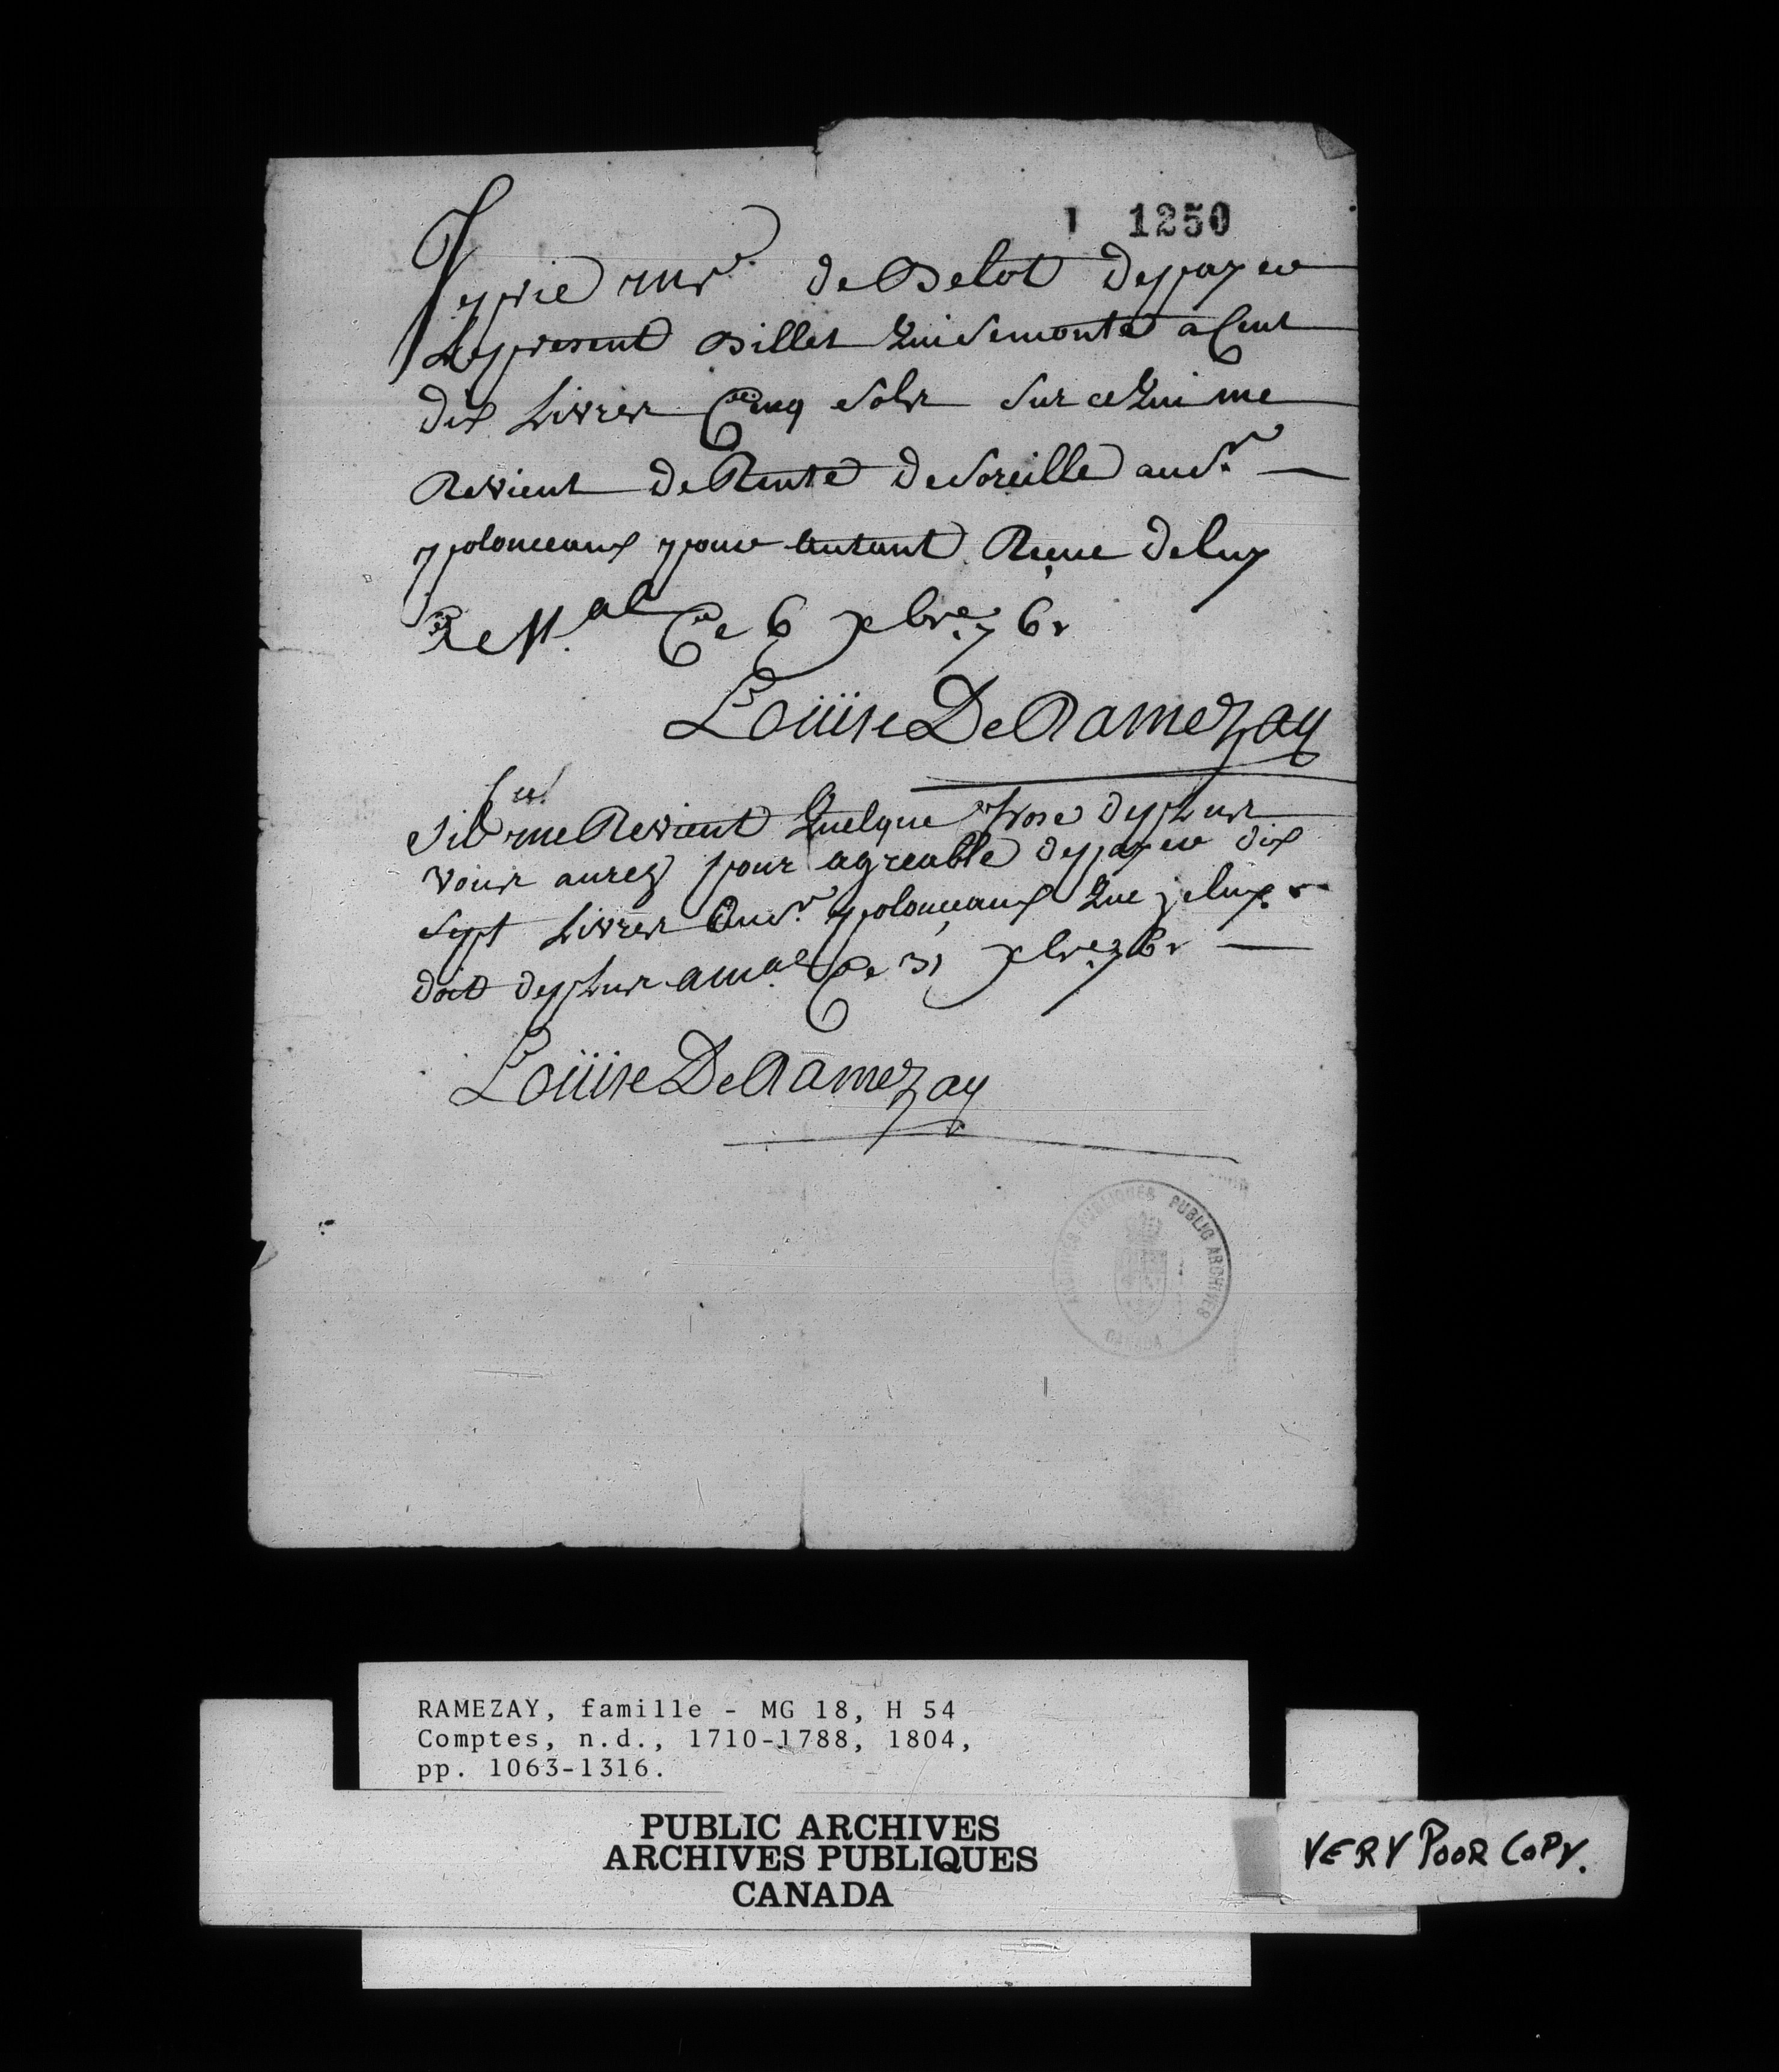 1250
Je prie mr. de Belot de payer
Le present Billet Qui se monte a Cent
dix Livres Cinq Sols Sur ce Qui me
Revient de Rente de Soreille au Sr.
polonceaux pour autant Reçue de luy
Ce 6 xbre. 76
Loüise De Ramezay
S'il me Revient Quelque chose de plus
vous aurez pour agreable de payer dix
Sept Livres au Sr. polonçeaux Que je luy
doit de plus a mal. Ce 31 xbre. 76
Loüise De Ramezay
ARCHIVES PUBLIQUES PUBLIC ARCHIVES
CANADA
RAMEZAY, famille - MG 18, H 54
Comptes, n.d., 1710-1788, 1804,
pp. 1063-1316.
PUBLIC ARCHIVES
ARCHIVES PUBLIQUES
CANADA
VERY POOR COPY.